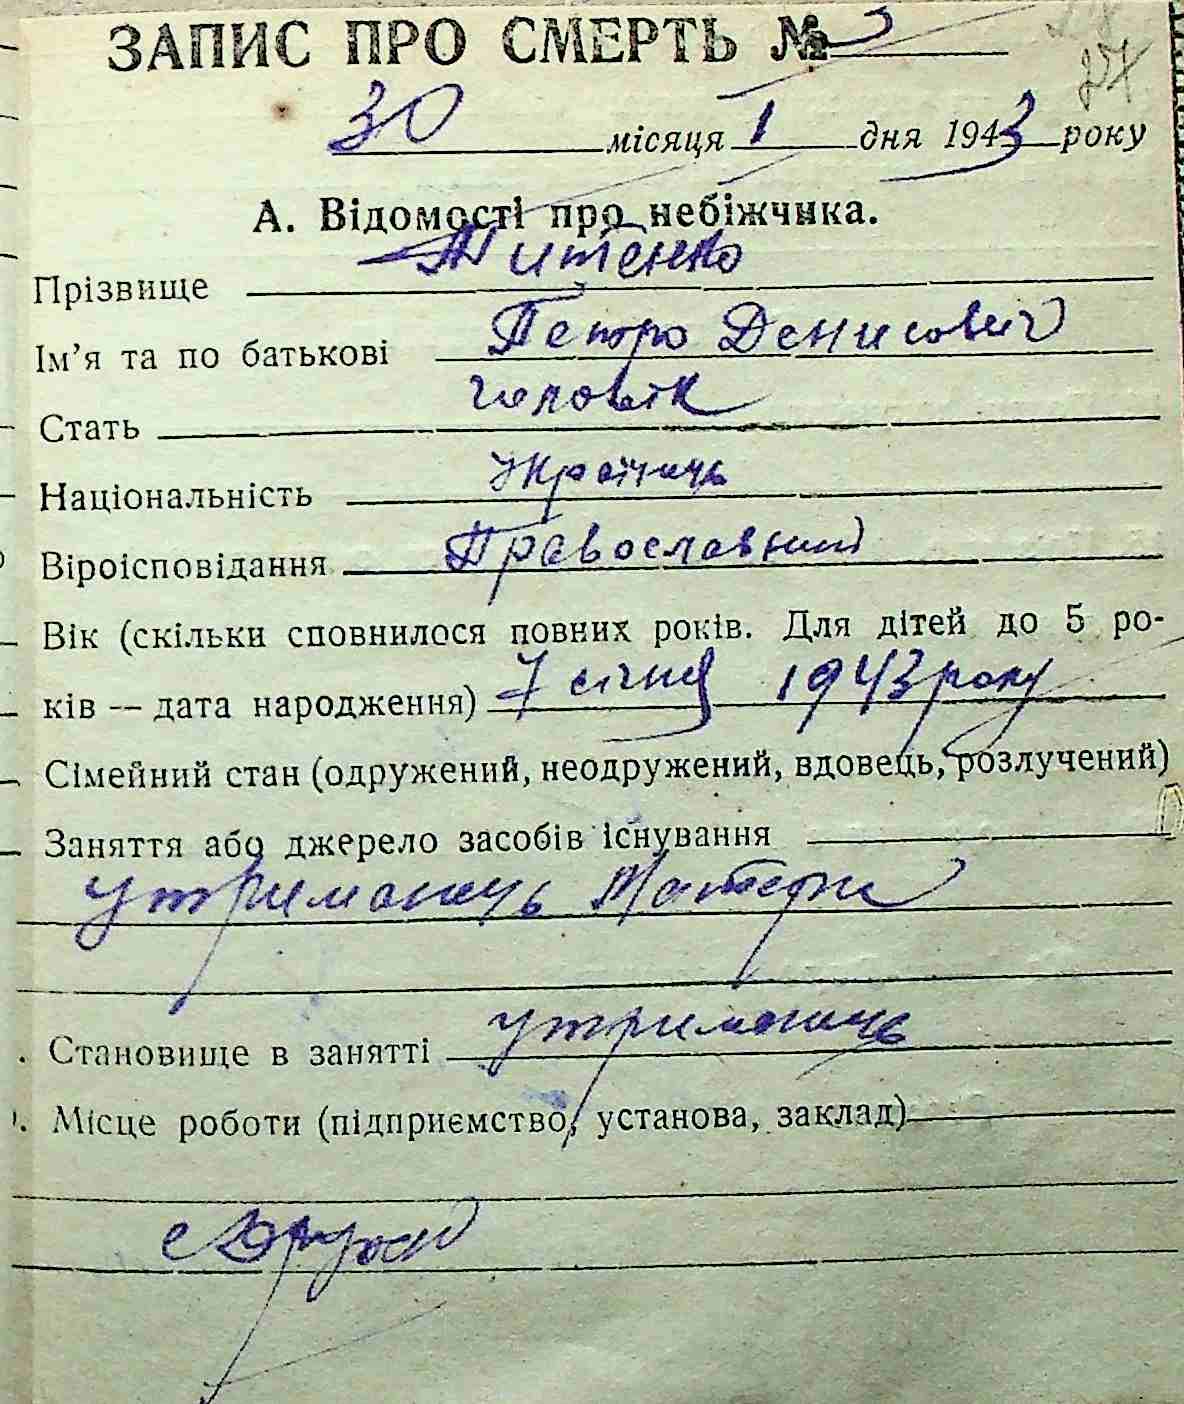 ЗАПИС ПРО СМЕРТЬ № 3
27
30 місяця I дня 1943 року
А. Відомості про небіжчика.
Прізвище Титенко
Ім’я та по батькові Петро Денисович
Стать чоловік
Національність Українець
Віроісповідання Православний
Вік (скільки сповнилося повних років. Для дітей до 5 ро-
ків — дата народження) 7 січня 1943 року
Сімейний стан (одружений, неодружений, вдовець, розлучений)
Заняття або джерело засобів існування
утриманець Матери
Становище в занятті утриманець
Місце роботи (підприємство, установа, заклад)
с